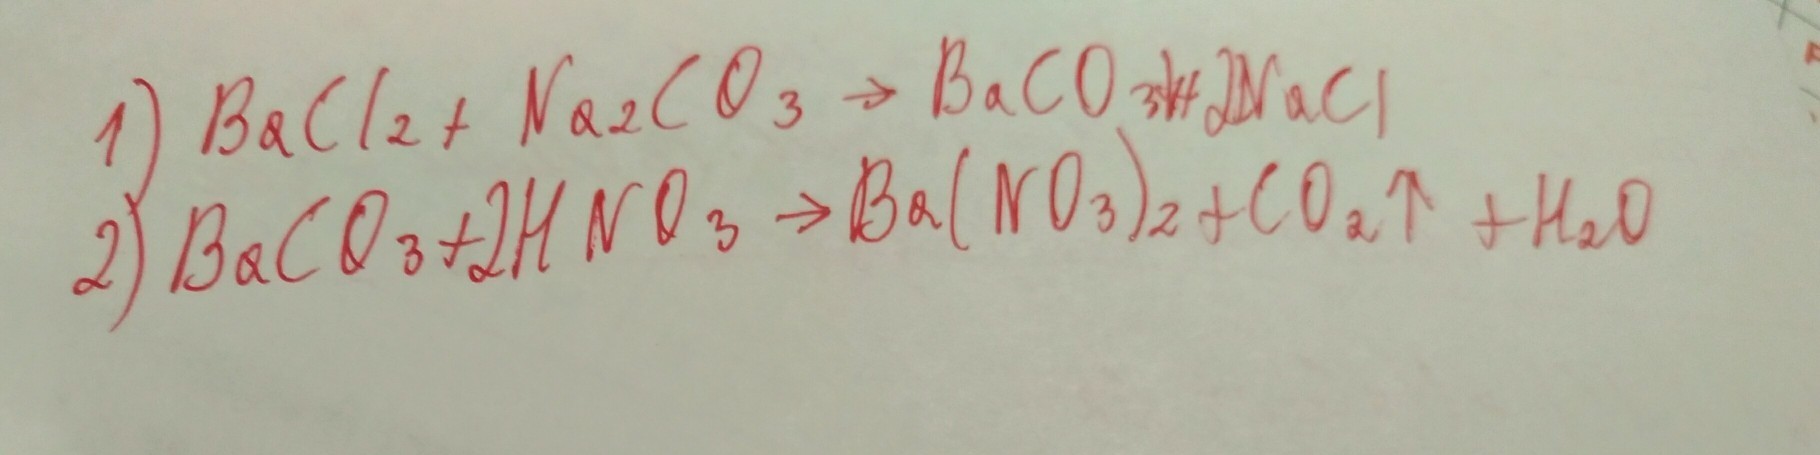 1) BaCl2 + Na2CO3 → BaCO3↓ + 2NaCl
2) BaCO3 + 2HNO3 → Ba(NO3)2 + CO2↑ + H2O